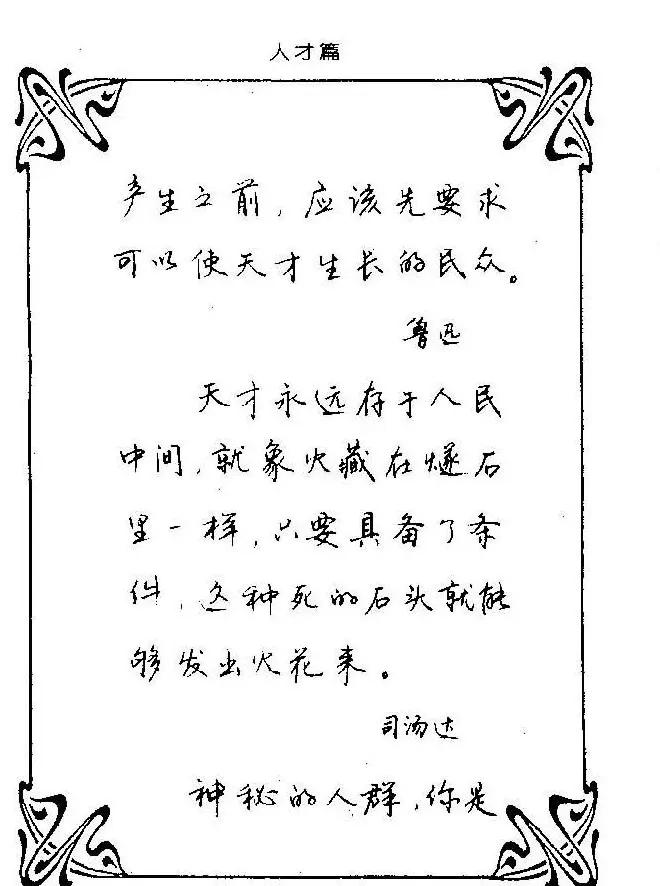 人才篇
产生之前，应该先要求
可以使天才生长的民众。
鲁迅
天才永远存于人民
中间，就象火藏在燧石
里一样，只要具备了条
件，这种死的石头就能
够发出火花来。
司汤达
神秘的人群，你是